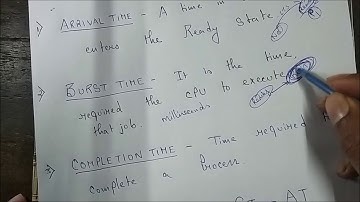 1) ARRIVAL TIME - A time in
enters the Ready State
2) BURST TIME - It is the time
required the CPU to execute
that job. milliseconds
3) COMPLETION TIME - Time required
complete a Process.
- AT